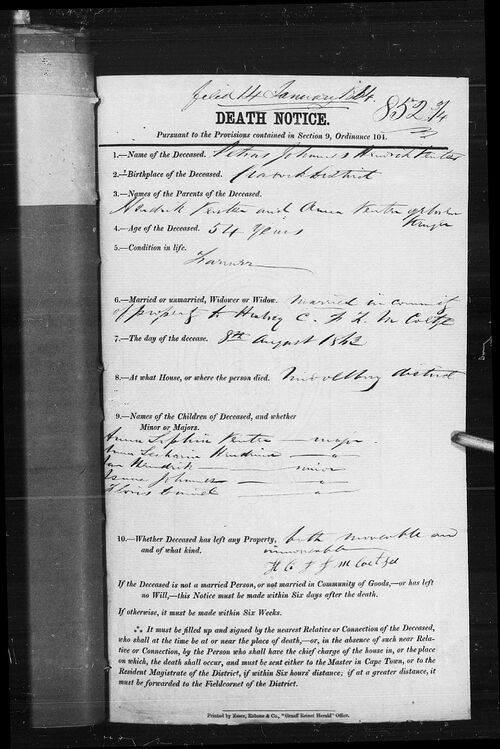 filed 14 January
852 7/4
DEATH NOTICE.
Pursuant to the Provisions contained in Section 9, Ordinance 104.
1.—Name of the Deceased. Petrus Johannes Hendrik
2.—Birthplace of the Deceased. District
3.—Names of the Parents of the Deceased.
Hendrik Venter and Anna Venter
Kruger
4.—Age of the Deceased. 54 Years
5.—Condition in life.
Farmer
6.—Married or unmarried, Widower or Widow. Married in community
of property to C.
7.—The day of the decease. 8th August 1863
8.—At what House, or where the person died. Middelburg district
9.—Names of the Children of Deceased, and whether
Minor or Majors.
Anna Sophia Venter — major
Hendrina
Hendrik — minor
Johannes
Daniel
10.—Whether Deceased has left any Property, both moveable and
and of what kind. immoveable
Coetzee
If the Deceased is not a married Person, or not married in Community of Goods,—or has left
no Will,—this Notice must be made within Six days after the death.
If otherwise, it must be made within Six Weeks.
∴ It must be filled up and signed by the nearest Relative or Connection of the Deceased,
who shall at the time be at or near the place of death,—or, in the absence of such near Rela-
tive or Connection, by the Person who shall have the chief charge of the house in, or the place
on which, the death shall occur, and must be sent either to the Master in Cape Town, or to the
Resident Magistrate of the District, if within Six hours' distance; if at a greater distance, it
must be forwarded to the Fieldcornet of the District.
Printed by Essex, Rabone & Co., "Graaff Reinet Herald" Office.